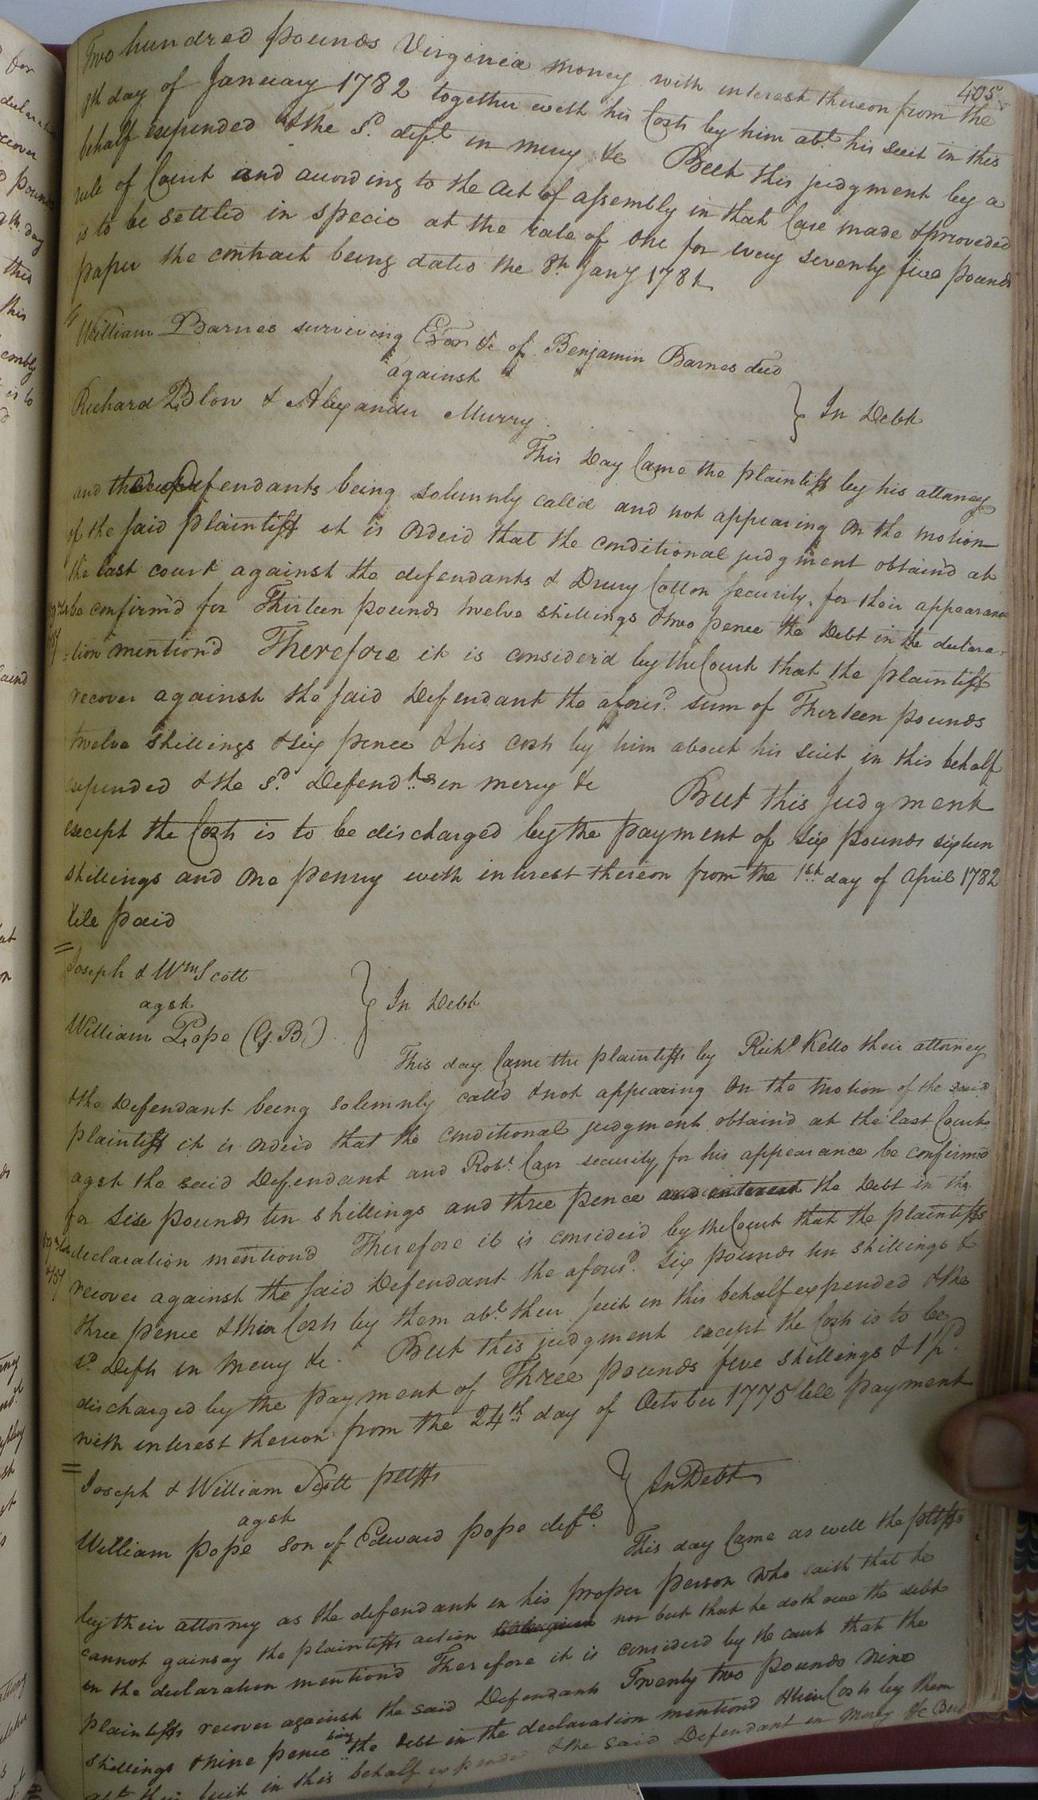 405
Two hundred pounds Virginia money with interest thereon from the
8th day of January 1782 together with his Costs by him abt. his suit in this
behalf expended & the sd. deft. in mercy &c But this judgment by a
rule of Court and according to the Act of assembly in that Case made & provided
is to be settled in specie at the rate of one for every seventy five pounds
paper the contract being dated the 8th Jany 1781
William Barnes surviving Exor &c of Benjamin Barnes decd
against
Richard Blow & Alexander Murry.
In Debt
This Day Came the plaintiff by his attorney
and the Defendants being solemnly called and not appearing On the motion
of the said plaintiff it is Orderd that the conditional judgment obtaind at
the last court against the defendants & Drury Cotton security for their appearance
be confirm'd for Thirteen pounds twelve shillings & two pence the Debt in the declara-
tion mention'd Therefore it is consider'd by the Court that the plaintiff
recover against the said Defendant the aforesd. sum of Thirteen pounds
twelve shillings & six pence & his costs by him about his suit in this behalf
expended & the sd. Defendts in mercy &c But this Judgment
except the Costs is to be discharged by the payment of six pounds sixteen
shillings and One penny with interest thereon from the 1st day of April 1782
till paid
Joseph & Wm Scott
agst
William Pope (G. B.)
In Debt
This day Came the plaintiffs by Richd Kello their attorney
& the Defendant being solemnly called & not appearing On the motion of the said
plaintiff it is orderd that the conditional judgment obtain'd at the last Court
agst the said Defendant and Robt. Carr security for his appearance be confirmed
for Six pounds ten shillings and three pence and interest the Debt in the
declaration mention'd Therefore it is considerd by the Court that the plaintiffs
recover against the said Defendant the aforesd. six pounds ten shillings &
three pence & their Costs by them abt. their suit in this behalf expended & the
sd. Deft in mercy &c. But this judgment except the Costs is to be
discharged by the payment of Three pounds five shillings & 1 pd.
with interest thereon from the 24th day of October 1775 till payment
Joseph & William Scott pltffs
agst
William pope son of Edward pope deft.
In Debt
This day Came as well the pltffs
by their attorney as the defendant in his proper person who saith that he
cannot gainsay the plaintiffs action nor but that he doth owe the debt
in the declaration mention'd Therefore it is considerd by the court that the
plaintiffs recover against the said Defendant Twenty two pounds nine
shillings & nine pence being the debt in the declaration mentiond & their Costs by them
abt. their suit in this behalf expended & the said Defendant in mercy &c But